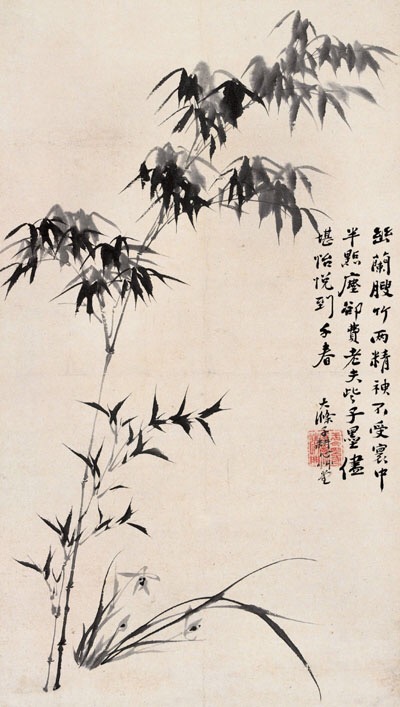 幽蘭膄竹兩精神不受寰中
半點塵卻費老夫些子墨儘
堪怡悅到千春
大滌子耕心草堂